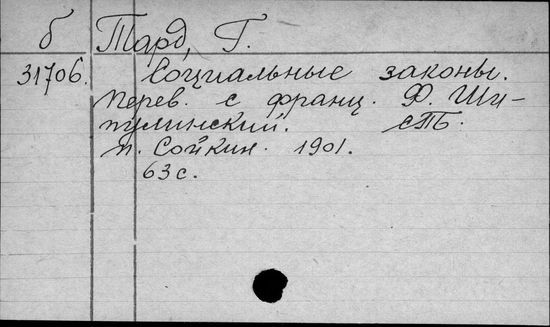 б Тард, Г.
31706. Социальные законы.
Перев. с франц. Ф. Ши-
пулинский. СПБ.
п. Сойкин. 1901.
63 с.